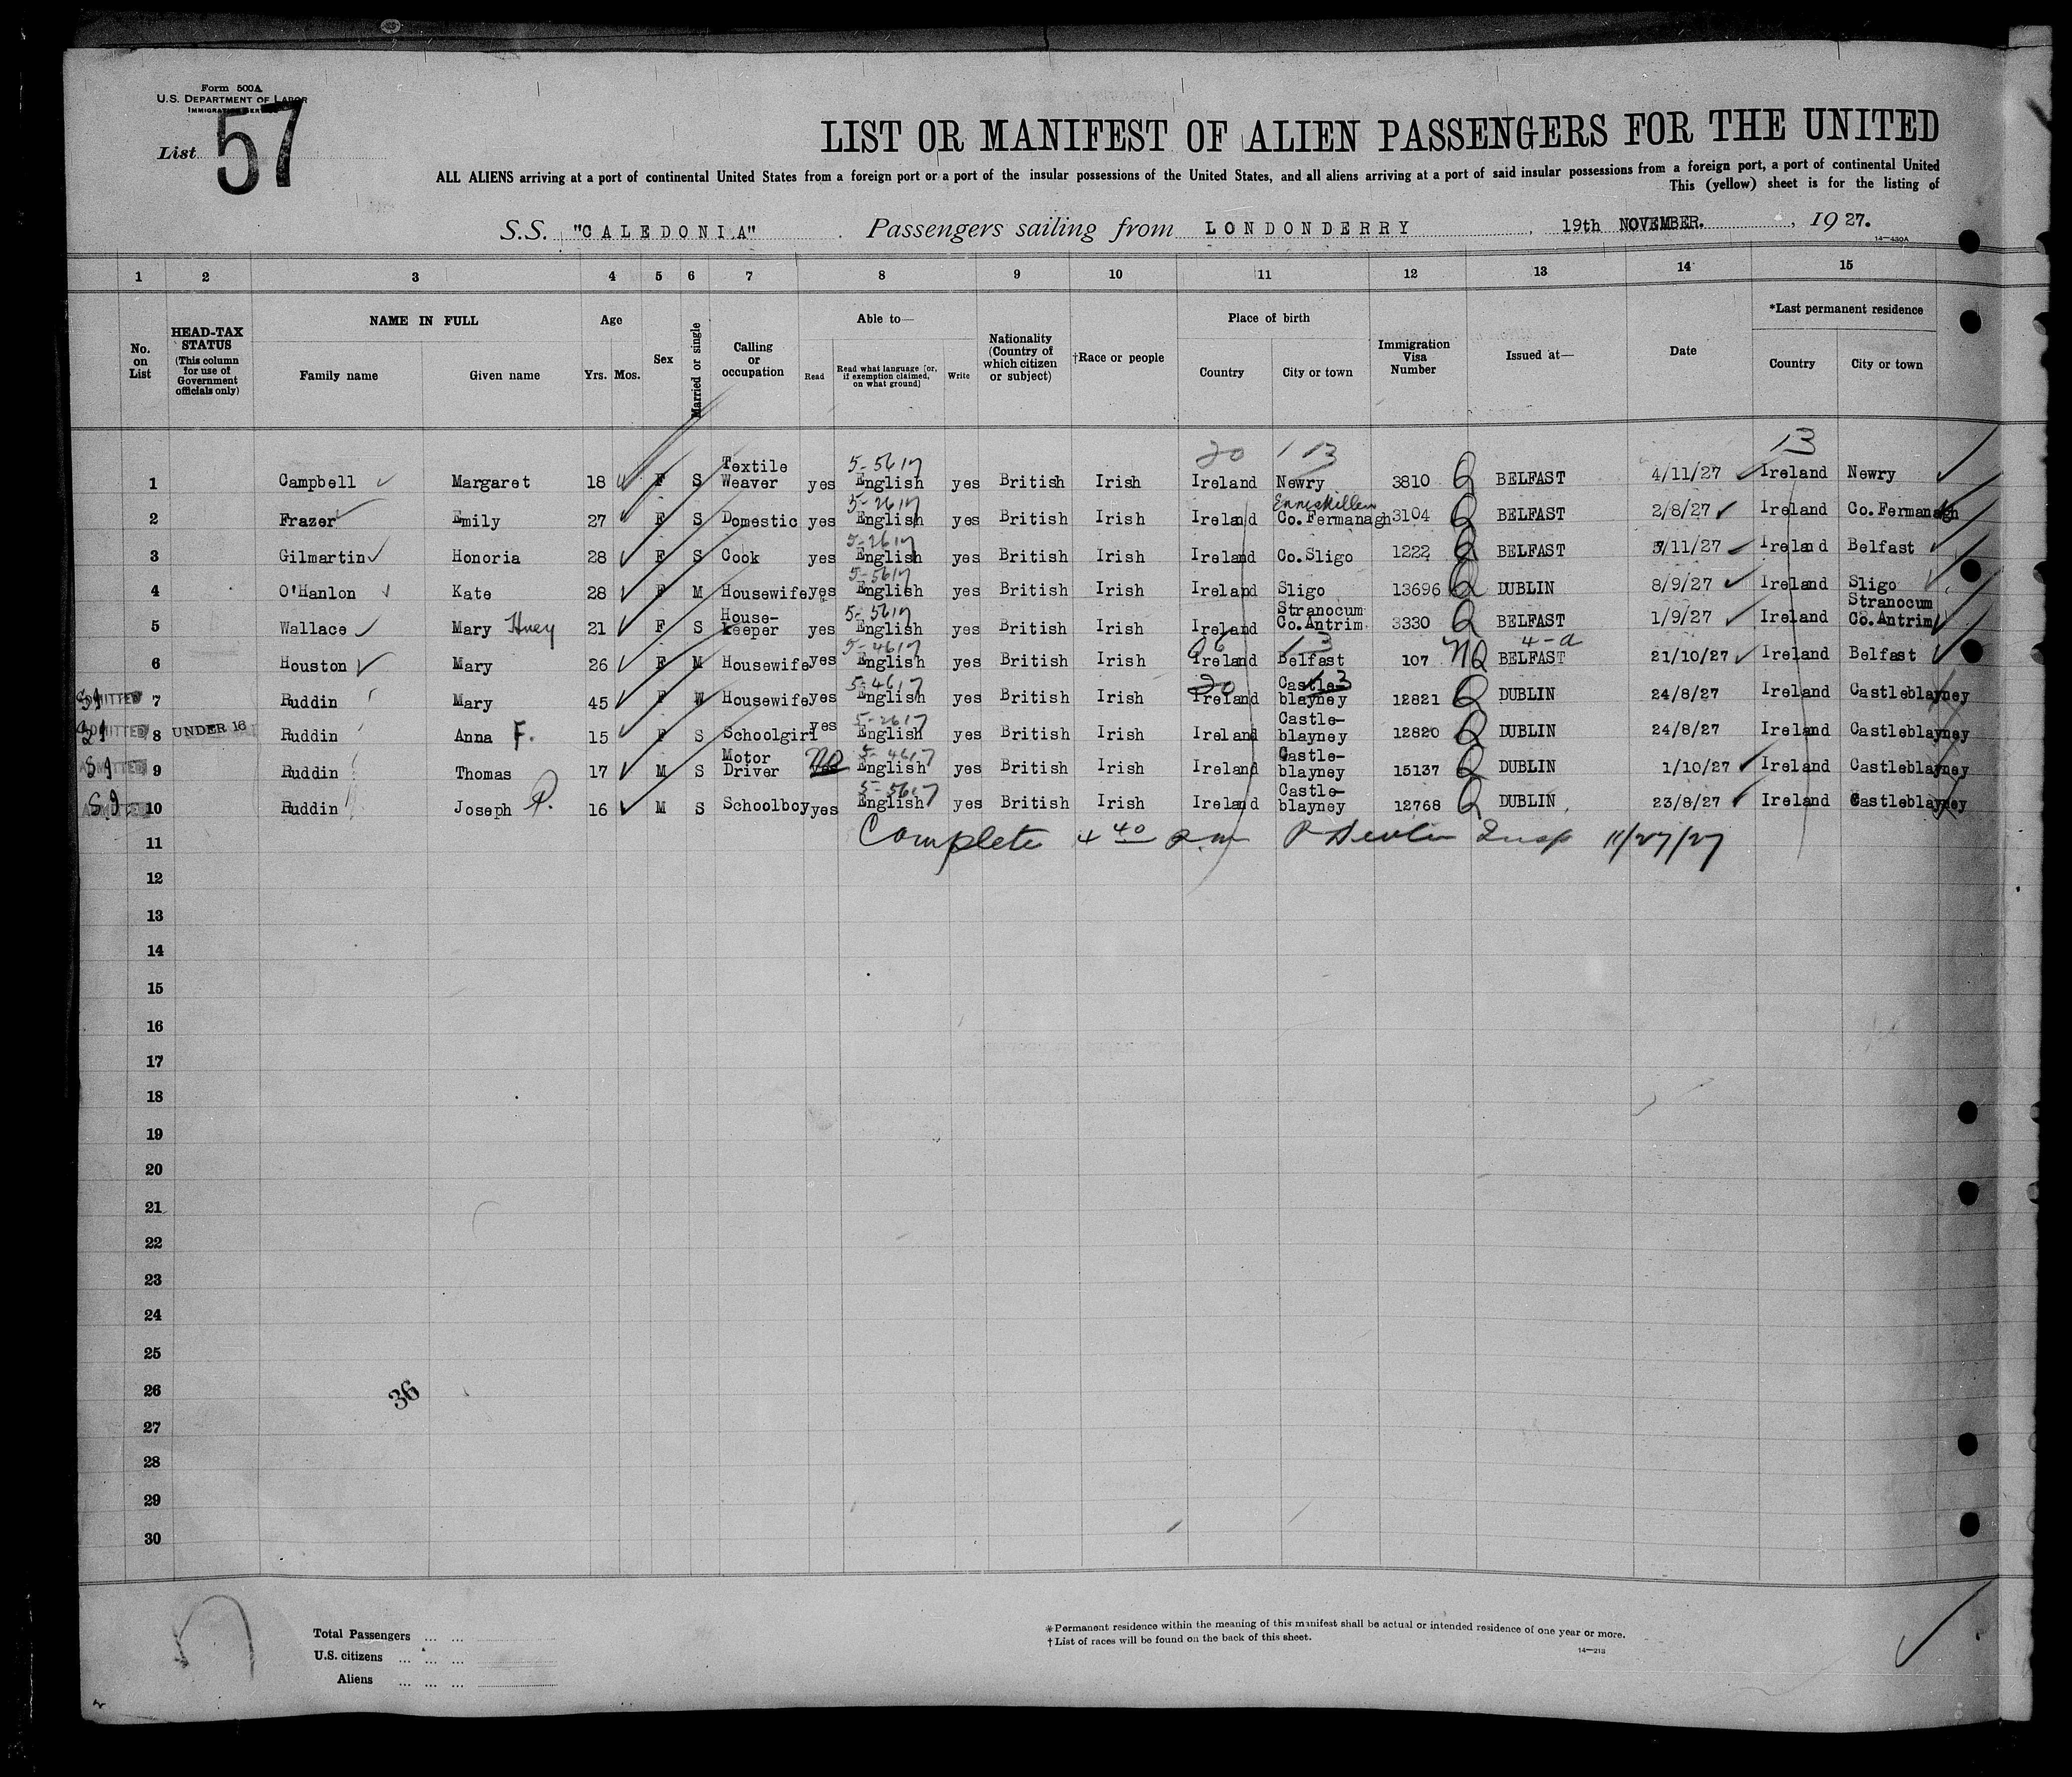 Form 500A
U.S. DEPARTMENT OF LABOR
List 57
LIST OR MANIFEST OF ALIEN PASSENGERS FOR THE UNITED
ALL ALIENS arriving at a port of continental United States from a foreign port or a port of the insular possessions of the United States, and all aliens arriving at a port of said insular possessions from a foreign port, a port of continental United
This (yellow) sheet is for the listing of
S.S. "CALEDONIA" Passengers sailing from LONDONDERRY, 19th NOVEMBER., 1927.
14—430A
1 2 3 4 5 6 7 8 9 10 11 12 13 14 15
No. on List
HEAD-TAX STATUS (This column for use of Government officials only)
NAME IN FULL
Family name Given name
Age
Yrs. Mos.
Sex
Married or single
Calling or occupation
Able to—
Read
Read what language [or, if exemption claimed, on what ground]
Write
Nationality (Country of which citizen or subject)
†Race or people
Place of birth
Country City or town
Immigration Visa Number
Issued at—
Date
*Last permanent residence
Country City or town
20 13 13
5-5617
1 Campbell Margaret 18 F S Textile Weaver yes English yes British Irish Ireland Newry 3810 Q BELFAST 4/11/27 Ireland Newry
5-2617 Enniskillen
2 Frazer Emily 27 F S Domestic yes English yes British Irish Ireland Co.Fermanagh 3104 Q BELFAST 2/8/27 Ireland Co.Fermanagh
5-2617
3 Gilmartin Honoria 28 F S Cook yes English yes British Irish Ireland Co.Sligo 1222 Q BELFAST /11/27 Ireland Belfast
5-5617
4 O'Hanlon Kate 28 F M Housewife yes English yes British Irish Ireland Sligo 13696 Q DUBLIN 8/9/27 Ireland Sligo
5-5617
5 Wallace Mary Huey 21 F S House-keeper yes English yes British Irish Ireland Stranocum Co.Antrim 3330 Q BELFAST 1/9/27 Ireland Stranocum Co.Antrim
5-4617 06 13 4-a
6 Houston Mary 26 F M Housewife yes English yes British Irish Ireland Belfast 107 NQ BELFAST 21/10/27 Ireland Belfast
5-4617 20 13
SI ADMITTED 7 Ruddin Mary 45 F W Housewife yes English yes British Irish Ireland Castle-blayney 12821 Q DUBLIN 24/8/27 Ireland Castleblayney
5-2617
SI ADMITTED 8 UNDER 16 Ruddin Anna F. 15 F S Schoolgirl yes English yes British Irish Ireland Castle-blayney 12820 Q DUBLIN 24/8/27 Ireland Castleblayney
5-4617
SI ADMITTED 9 Ruddin Thomas 17 M S Motor Driver no English yes British Irish Ireland Castle-blayney 15137 Q DUBLIN 1/10/27 Ireland Castleblayney
5-5617
SI ADMITTED 10 Ruddin Joseph P. 16 M S Schoolboy yes English yes British Irish Ireland Castle-blayney 12768 Q DUBLIN 23/8/27 Ireland Castleblayney
11 Complete 4 40 p.m. Insp 11/27/27
12
13
14
15
16
17
18
19
20
21
22
23
24
25
26
36
27
28
29
30
Total Passengers
U.S. citizens
Aliens
*Permanent residence within the meaning of this manifest shall be actual or intended residence of one year or more.
†List of races will be found on the back of this sheet.
14—213